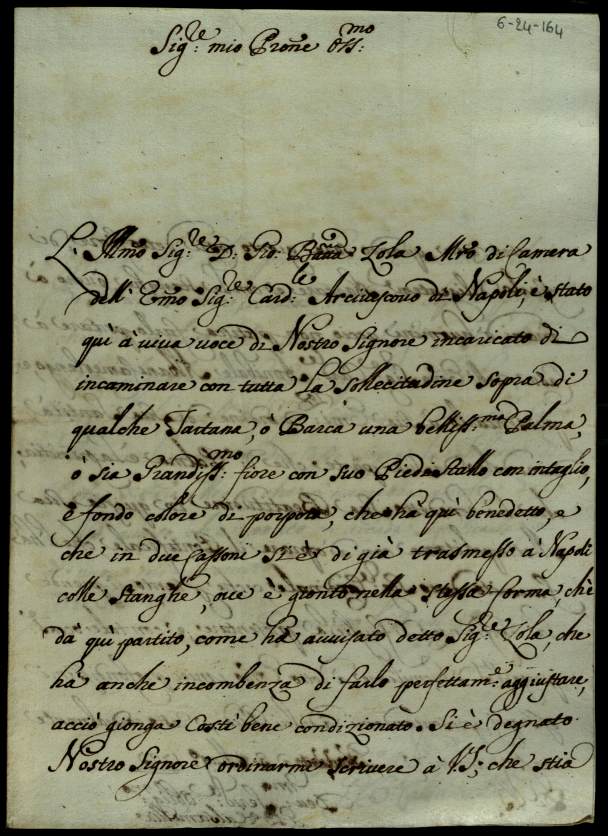 6-24-164
Sig:re mio Prone Oss:mo
L'Illmo Sig:re D: Gio: Batta Zola Mro di Camera
dell'Emo Sig:re Card:le Arcivescovo di Napoli è stato
qui à viva voce di Nostro Signore incaricato di
incaminare con tutta la sollecitudine sopra di
qualche Tartana, ò Barca una belliss:ma Palma,
ò sia Grandiss:mo fiore con suo Piedistallo con intaglio,
e fondo colore di porpora, che ha quì benedetto, e
che in due Cassoni si è di già trasmesso à Napoli
colle stanghe, ove è gionto nella stessa forma, chè
da quì partito, come hà avvisato detto Sig:re Zola, che
hà anche incombenza di farlo perfettam:e aggiustare,
acciò gionga Costì bene condizionato. Si è degnato
Nostro Signore ordinarmi scrivere à VS; che stia